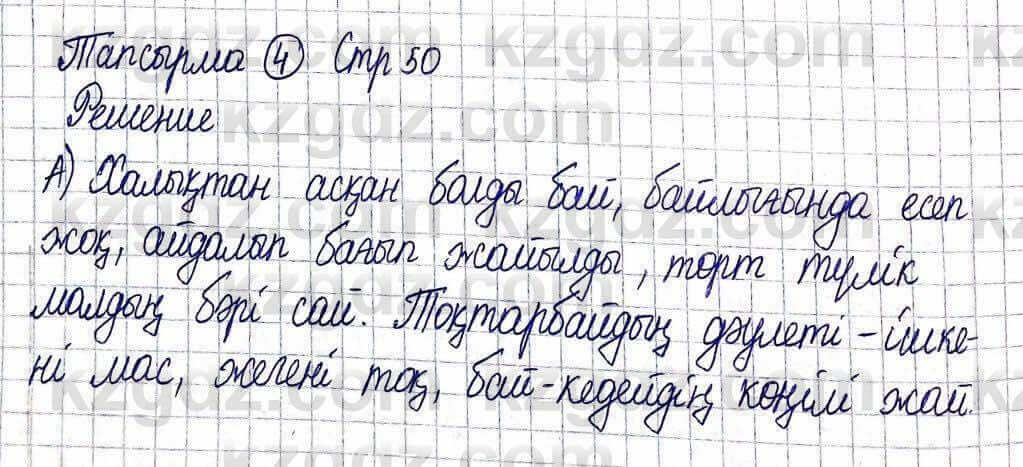 Тапсырма 4 Стр 50
Решение
А) Халықтан асқан болды бай, байлығында есеп
жоқ, айдалып бағып жайылды, төрт түлік
малдың бәрі сай. Тоқтарбайдың дәулеті - ішке-
ні мас, жегені тоқ, бай-кедейдің көңілі жай.